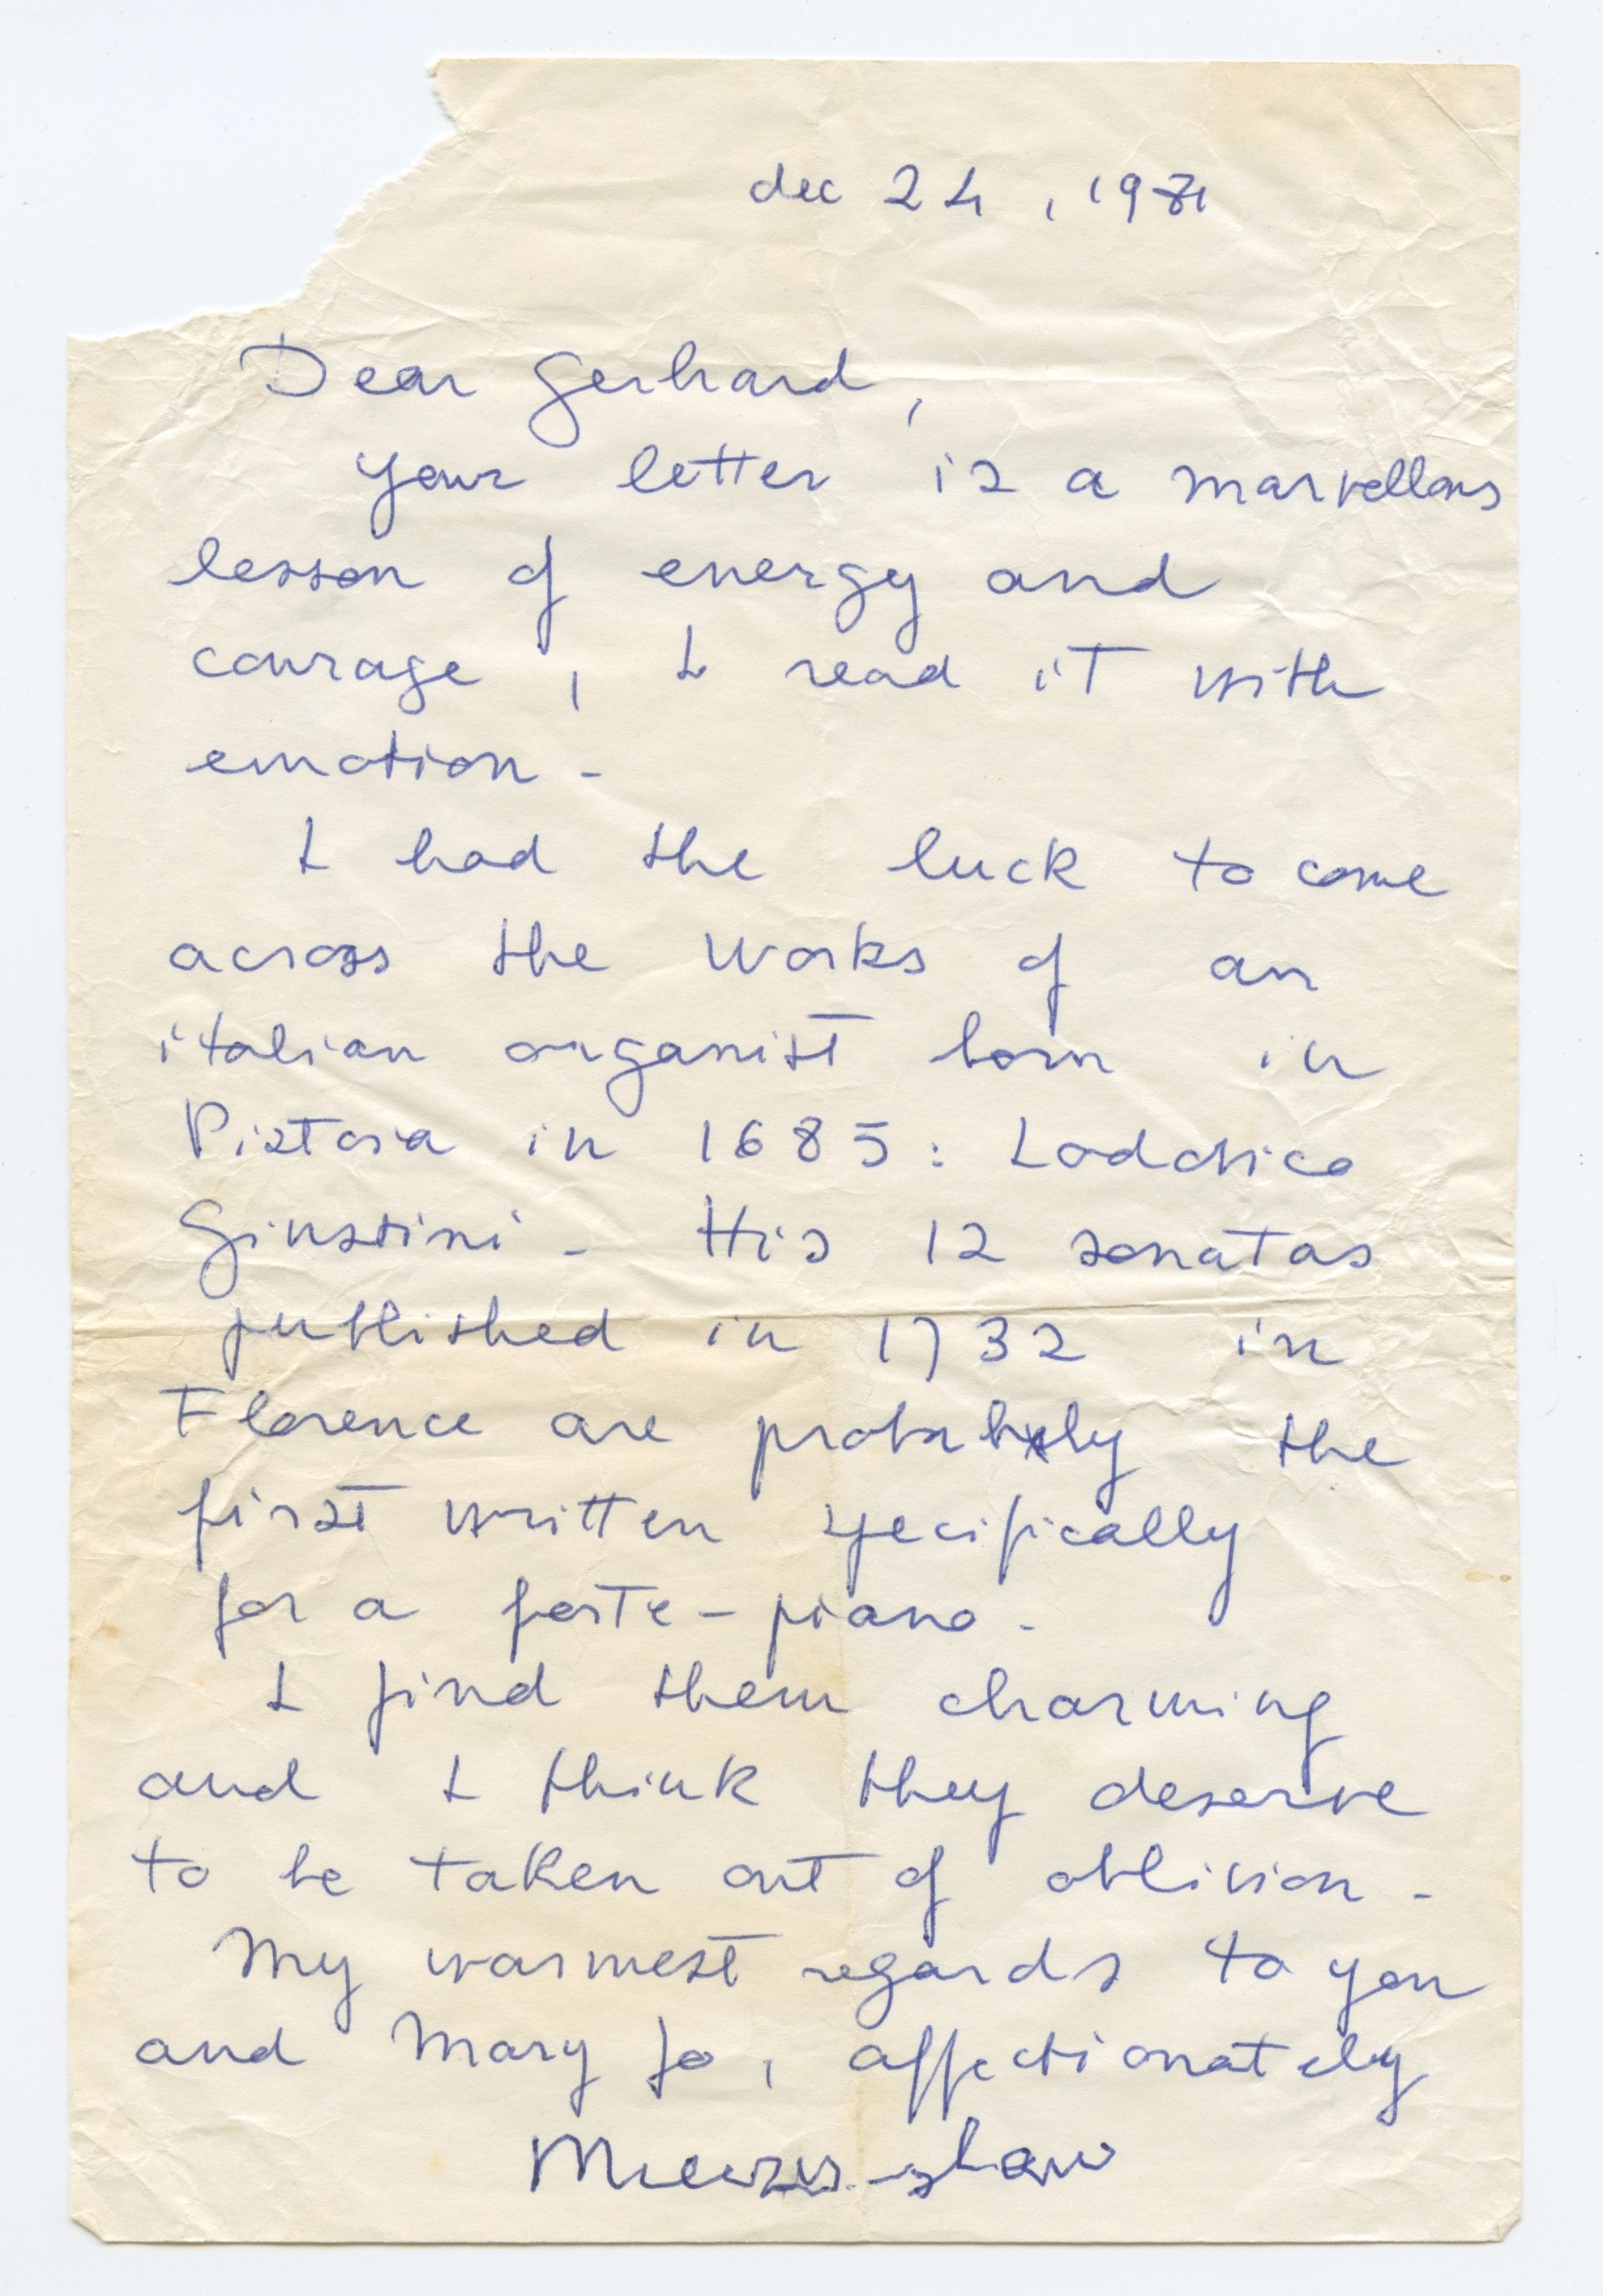 dec 24, 1981
Dear Gerhard,
your letter is a marvellous
lesson of energy and
courage, I read it with
emotion -
I had the luck to come
across the works of an
italian organist born in
Pistoia in 1685: Lodovico
Giustini - His 12 sonatas
published in 1732 in
Florence are probably the
first written specifically
for a forte-piano -
I find them charming
and I think they deserve
to be taken out of oblivion -
My warmest regards to you
and Mary Jo, affectionately